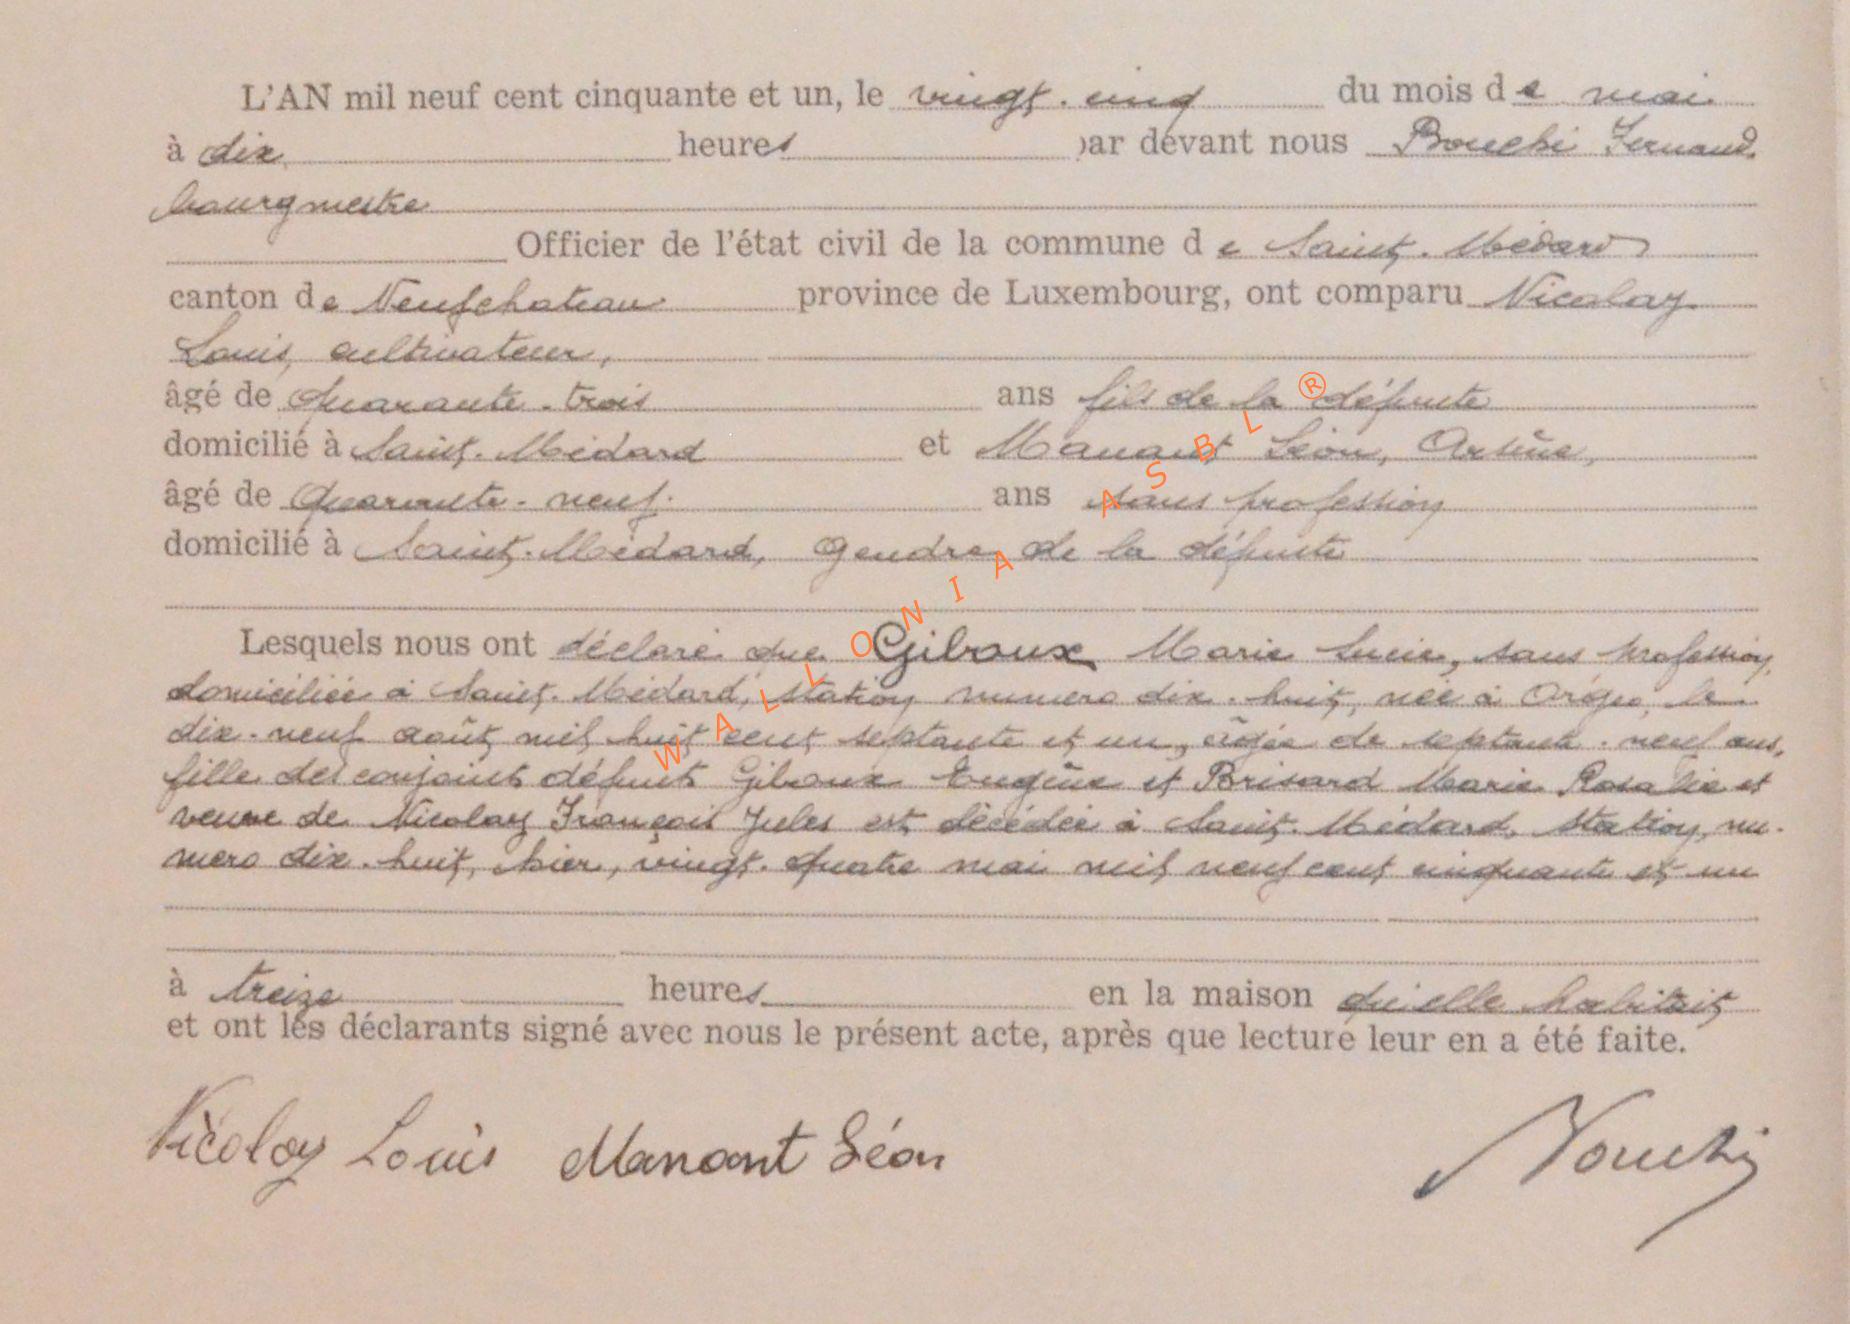 L'AN mil neuf cent cinquante et un, le vingt-cinq du mois de mai
à dix heures par devant nous Bouchi Fernand
bourgmestre
Officier de l'état civil de la commune de Saint-Médard
canton de Neufchateau province de Luxembourg, ont comparu Nicolay
Louis, cultivateur,
âgé de quarante-trois ans fils de la défunte
domicilié à Saint-Médard et Manant Léon, Arsène,
âgé de quarante-neuf ans sans profession
domicilié à Saint-Médard, gendre de la défunte
Lesquels nous ont déclaré que Giboux Marie Lucie, sans profession,
domiciliée à Saint-Médard, station numero dix-huit, née à Orgeo, le
dix-neuf août mil huit cent septante et un, âgée de septante-neuf ans,
fille des conjoints défunts Giboux Eugène et Brisard Marie Rosalie et
veuve de Nicolay François Jules est décédée à Saint-Médard, station, nu-
mero dix-huit, hier, vingt-quatre mai mil neuf cent cinquante et un
à treize heures en la maison qu'elle habitait
et ont les déclarants signé avec nous le présent acte, après que lecture leur en a été faite.
Nicolay Louis Manant Léon Bouchi
WALLONIA ASBL ®